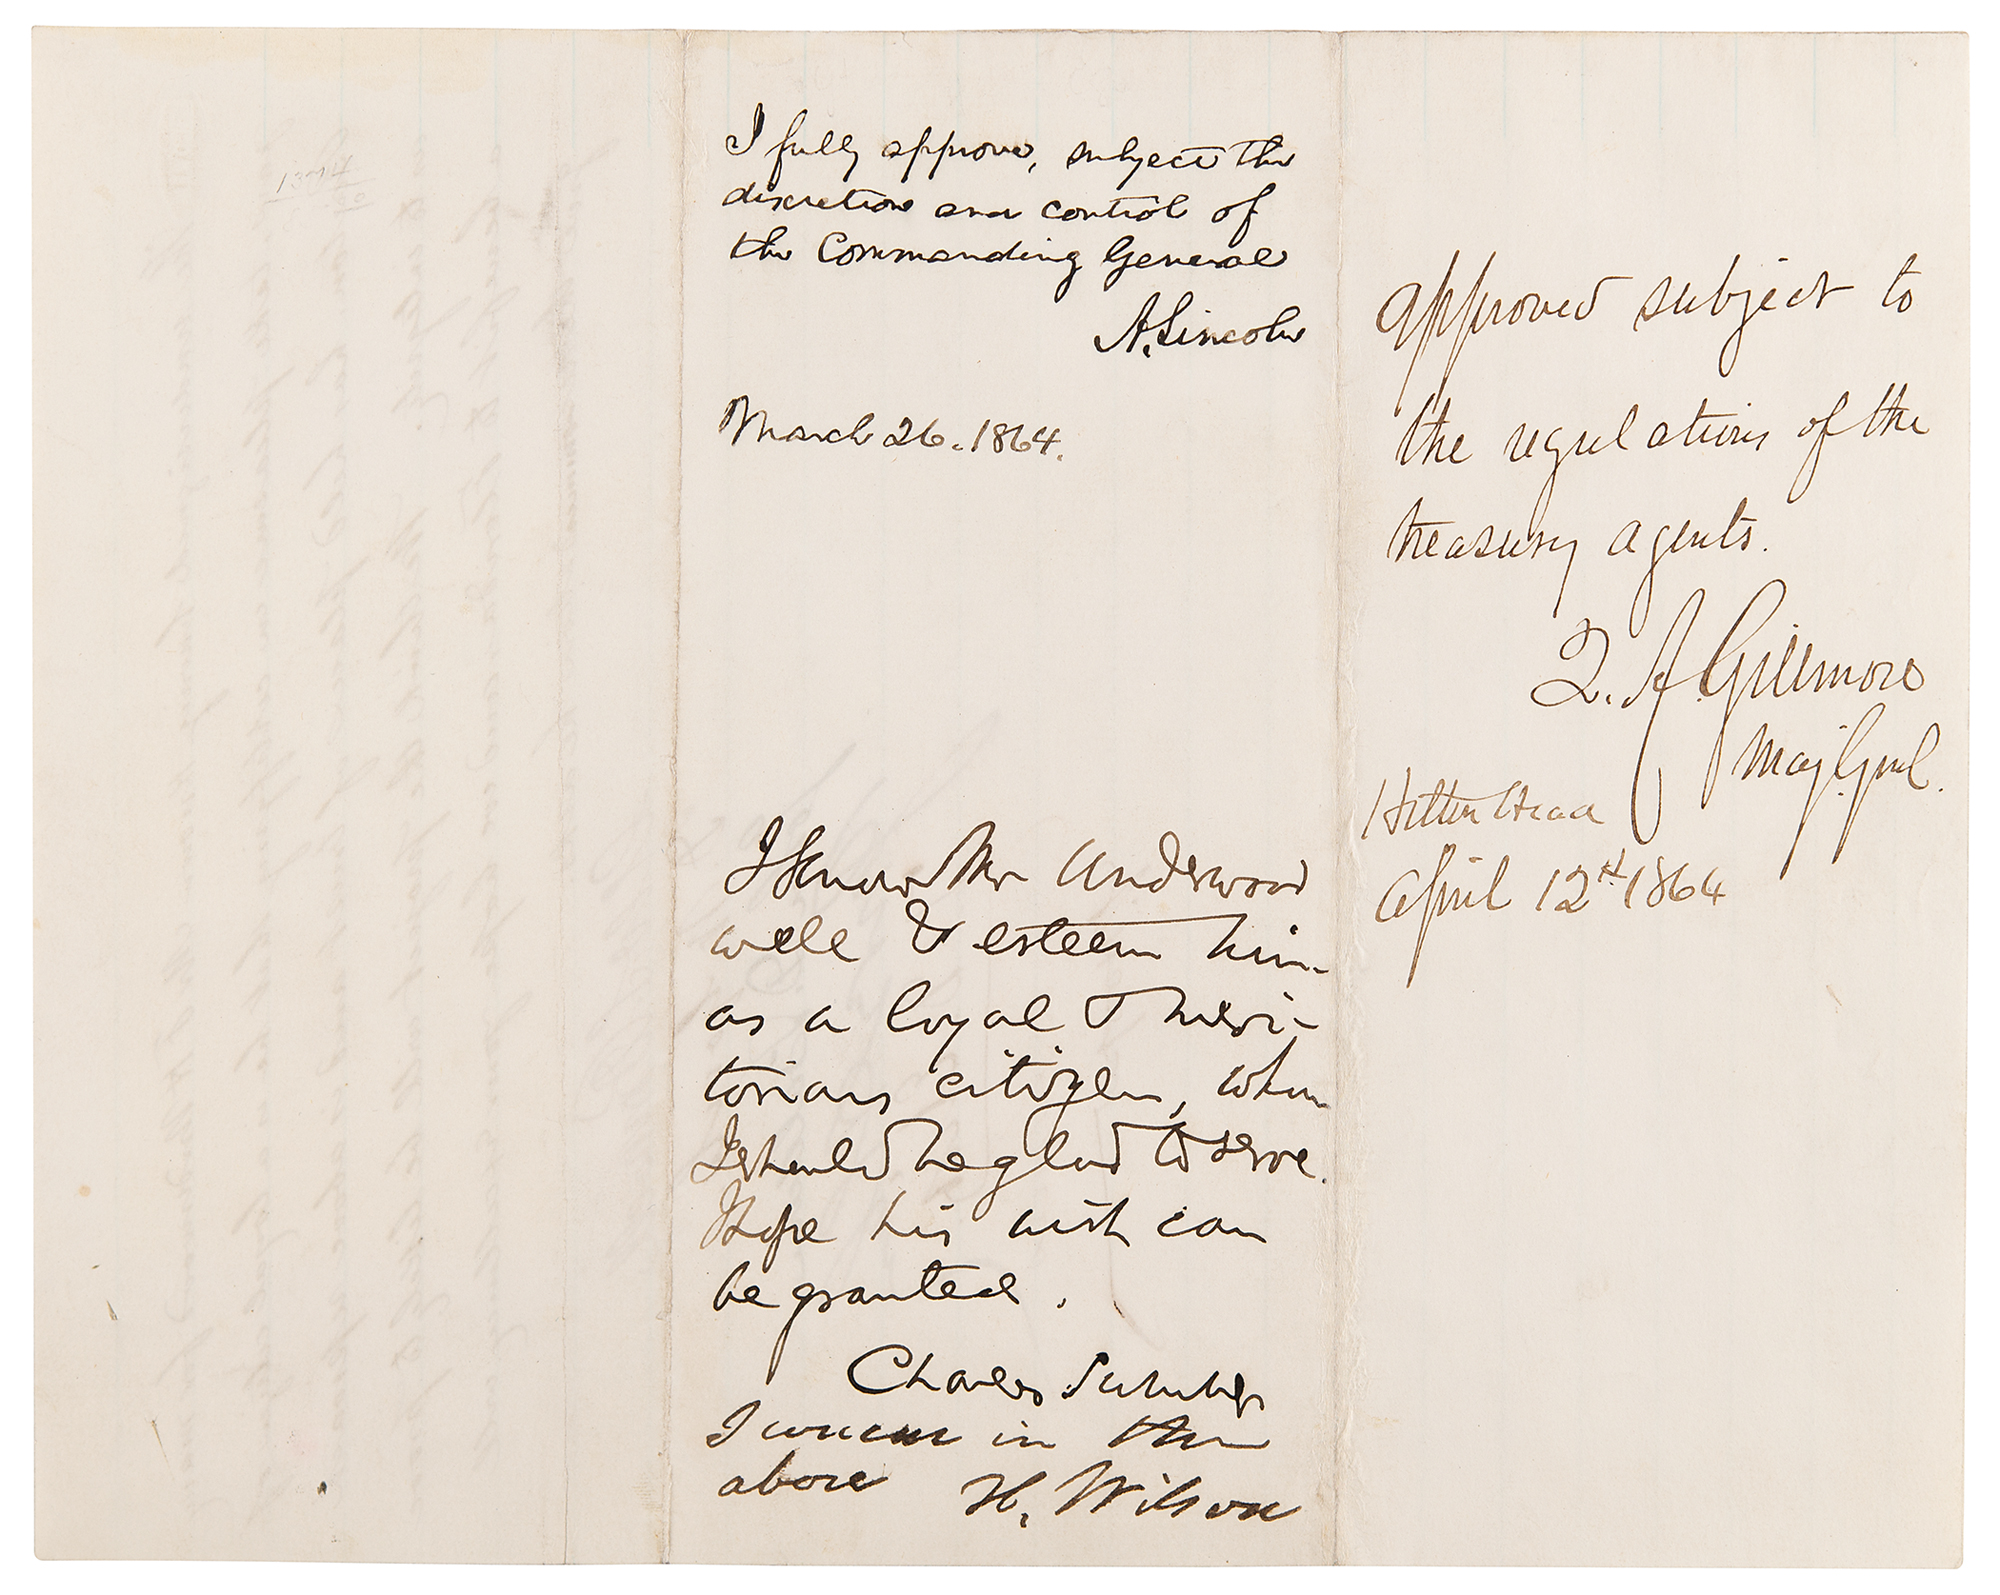 I fully approve, subject the
discretion and control of
the Commanding General
A. Lincoln
March 26. 1864.
I know Mr Underwood
well & esteem him
as a loyal & meri-
torious citizen, whom
I should be glad to serve.
I hope his wish can
be granted.
Charles Sumner
I concur in the
above H. Wilson
approved subject to
the regulations of the
treasury agents.
Q. A. Gillmore
Maj. Genl.
Hilton Head
April 12th 1864